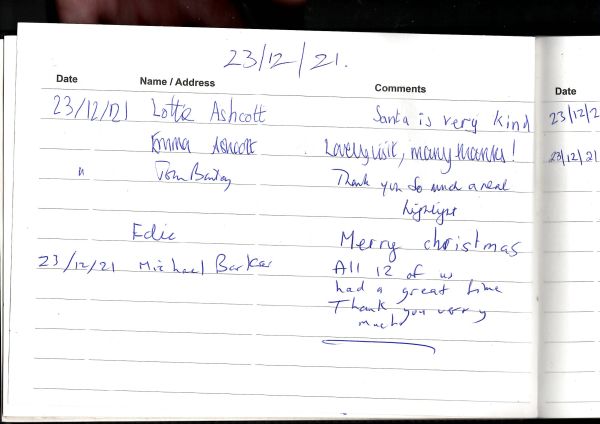 23/12/21.
Date Name / Address Comments Date
23/12/21 Lottie Ashcott Santa is very kind 23/12/2
Emma Ashcott Lovely visit, many thanks! 23/12/21
" Tom Thank you so much a real
highlight
Edie Merry christmas
23/12/21 Michael Barker All 12 of us
had a great time
Thank you very
much